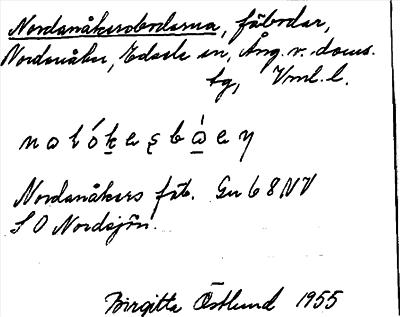 Nordanåkersbodarna, fäbodar,
Nordanåker, Edsele sn, Ång. v. doms.
tg, Vml. l.
Nordanåkers fäb. Gu 68 NV
S O Nordsjön.
Birgitta Östlund 1955